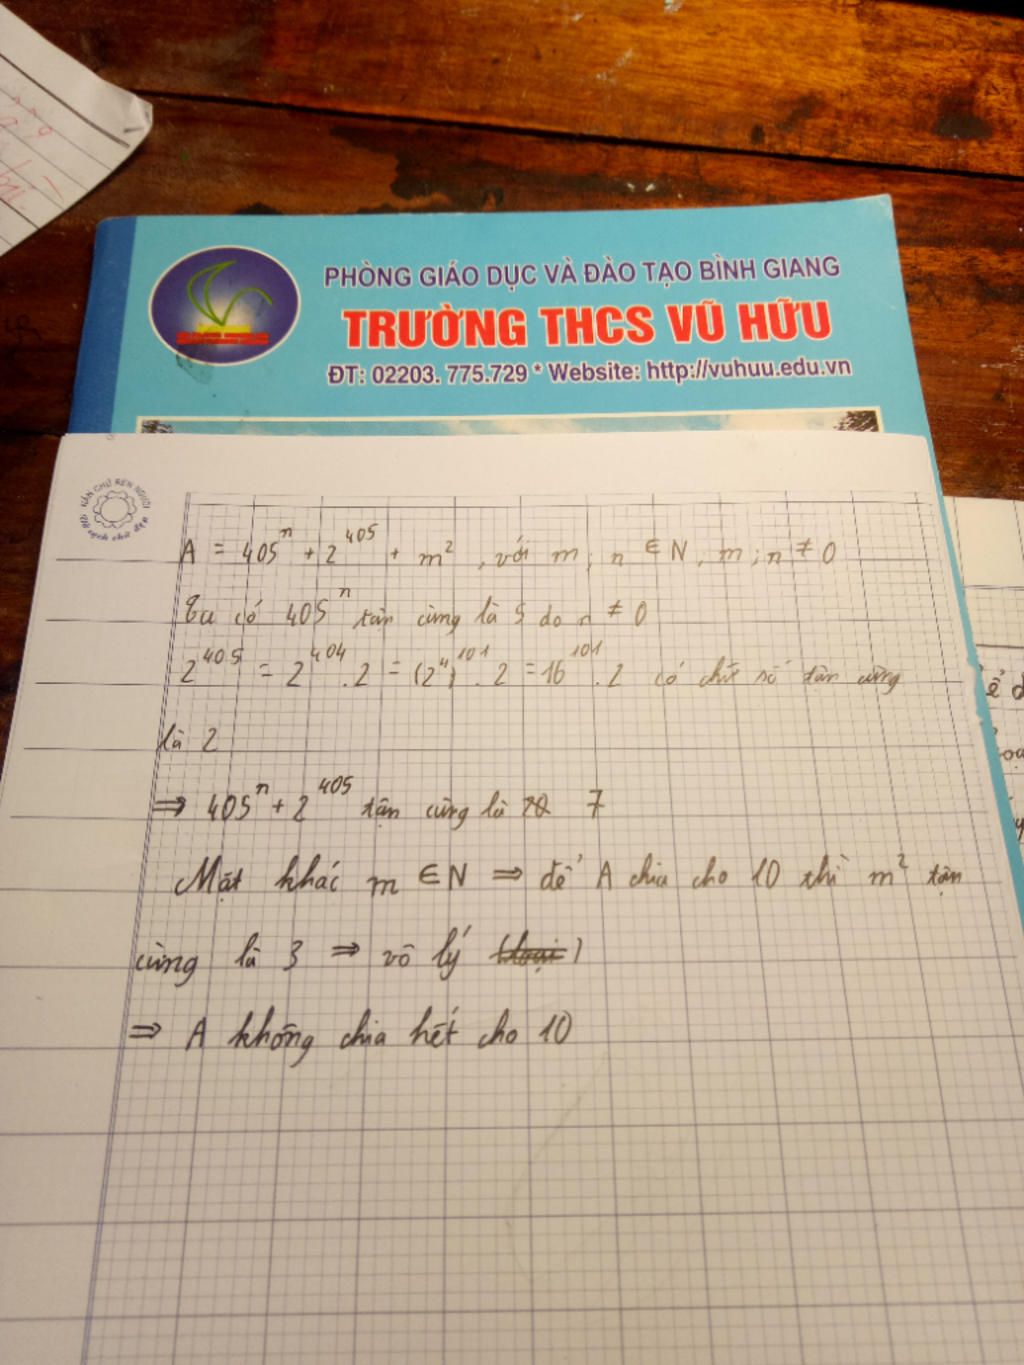 PHÒNG GIÁO DỤC VÀ ĐÀO TẠO BÌNH GIANG
TRƯỜNG THCS VŨ HỮU
ĐT: 02203. 775.729 * Website: http://vuhuu.edu.vn
A = 405^n + 2^405 + m², với m; n ∈ N, m; n ≠ 0
Ta có 405^n tận cùng là 5 do n ≠ 0
2^405 = 2^404 . 2 = (2^4)^101 . 2 = 16^101 . 2 có chữ số tận cùng
là 2
⇒ 405^n + 2^405 tận cùng là 7
Mặt khác m ∈ N ⇒ để A chia cho 10 thì m² tận
cùng là 3 ⇒ vô lý
⇒ A không chia hết cho 10